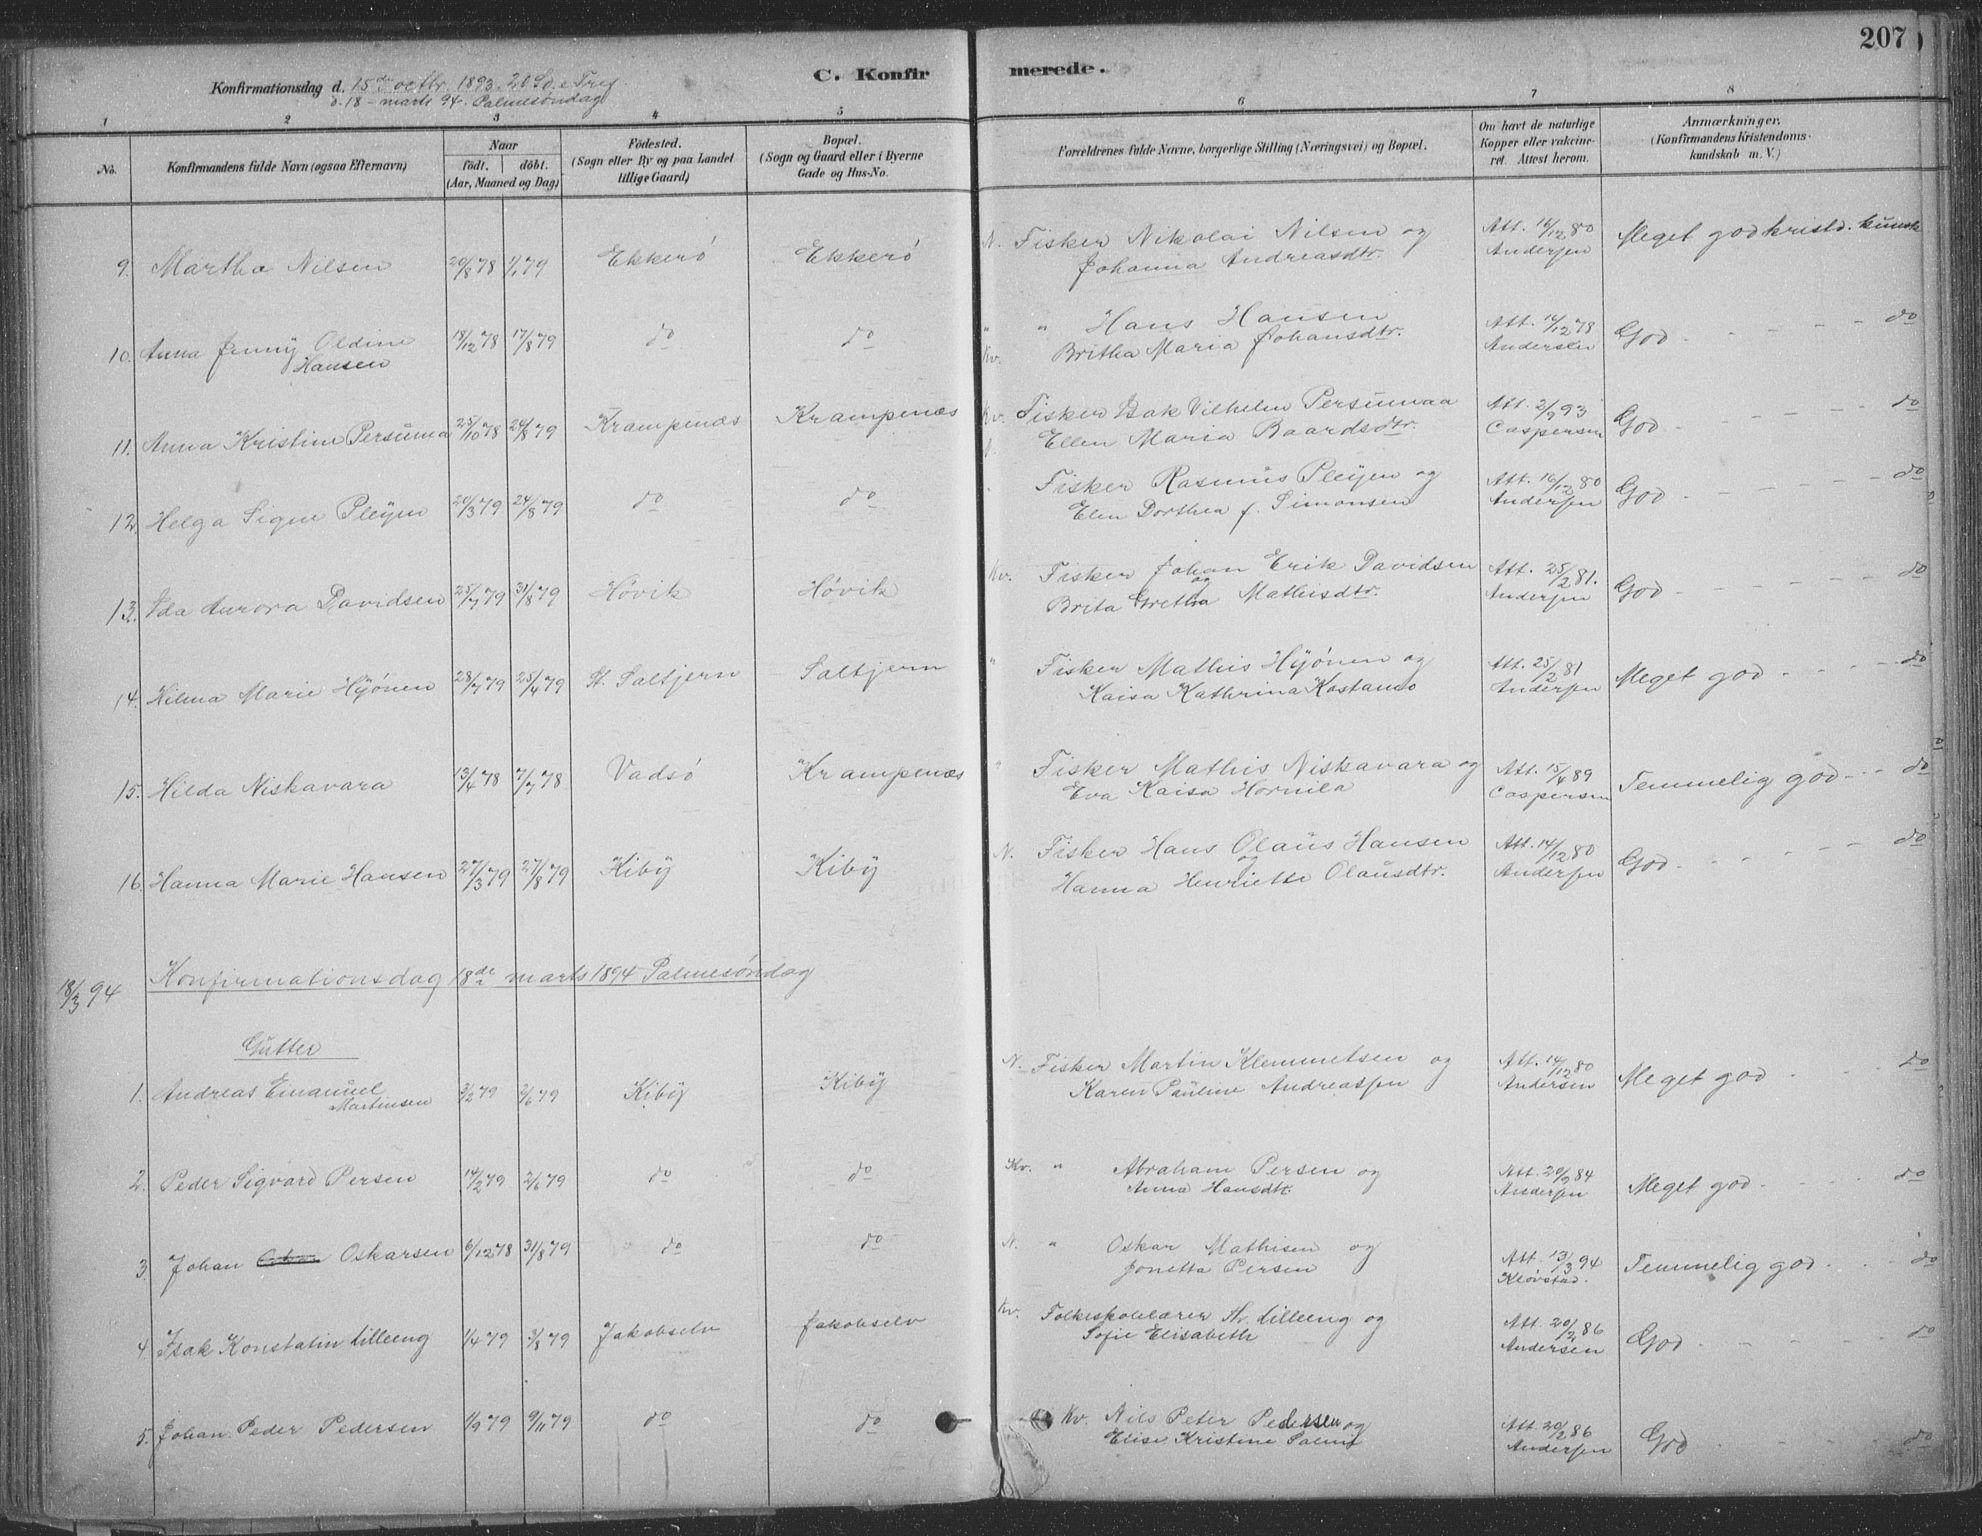 207
C. Konfirmerede.
Konfirmationsdag d. 15de octbr. 1893. 20 S. e Tref.
d. 18 - marts 94. Palmesøndag
1 2 3 4 5 6 7 8
No. Konfirmandens fulde Navn (ogsaa Efternavn) Naar födt. döbt. (Aar, Maaned og Dag) Födested. (Sogn eller By og paa Landet tillige Gaard) Bopæl. (Sogn og Gaard eller i Byerne Gade og Hus-No. Forældrenes fulde Navne, borgerlige Stilling (Næringsvei) og Bopæl. Om havt de naturlige Kopper eller vakcineret. Attest herom. Anmærkninger. (Konfirmandens Kristendomskundskab m. V.)
9. Martha Nilsen 20/8 78 1/1 79 Ekkerö Ekkerö N. Fisker Nikolai Nilsen og Att. 14/12 80 Meget god kristd. kunsk
Johanna Andreasdtr. Andersen
10. Anna Jenny Oldine 18/12 78 17/8 79 do do " " Hans Hansen Att. 16/12 78 God - - - - do
Hansen Kv. Britha Maria Johansdtr. Andersen
11. Anna Kristine Persuma 25/10 78 24/8 79 Krampenæs Krampenæs Kv. Fisker Isak Vilhelm Persumaa Att. 2/9 93 God - - - - do
Ellen Maria Baardsdtr. Caspersen
12. Helga Signe Pleym 20/3 79 24/8 79 do do Fisker Rasmus Pleyen og Att. 16/2 80 God - - - - do
Elen Dorthea f. Simonsen Andersen
13. Ida Aurora Davidsen 25/7 79 31/8 79 Høvik Høvik Kv. Fisker Johan Erik Davidsen Att. 25/2 81. God - - - - do
og
Brita Gretha Mathisdtr. Andersen
14. Hilma Marie Hyönen 28/7 79 25/4 79 St. Saltjern Saltjern " Fisker Mathis Hyönen og Att. 25/2 81 Meget god - - - do
Kaisa Kathrina Kostamo Andersen
15. Hilda Niskavara 13/4 78 7/7 78 Vadsö Krampenæs " Fisker Mathis Niskavara og Att. 15/4 89 Temmelig god - - do
Eva Kaisa Hornila Caspersen
16. Hanna Marie Hansen 27/3 79 27/8 79 Kiby Kiby N. Fisker Hans Olaus Hansen Att. 14/12 80 God - - - - do
og
Hanna Henriette Olausdtr. Andersen
18/3 94 Konfirmationsdag 18de marts 1894 Palmesøndag
Gutter
1. Andreas Emanuel 3/2 79 2/6 79 Kiby Kiby N. Fisker Martin Klemmetsen og Att. 14/12 80 Meget god - - - do
Martinsen Karen Pauline Andreassen Andersen
2. Peder Sigvard Persen 14/2 79 2/6 79 do do Kv. " Abraham Persen og Att. 20/9 84 Meget god - - - do
Anna Hansdtr. Andersen
3. Johan Oskarsen 6/12 78 31/8 79 do do N. " Oskar Mathisen og Att. 13/3 94 Temmelig god - - - do
Jonetta Persen Kløvstad.
4. Isak Konstatin Lilleeng 1/4 79 3/8 79 Jakobselv Jakobselv Kv. Folkeskolelærer Lilleeng og Att. 20/2 86 God - - - - do
Sofie Elisabeth Andersen
5. Johan Peder Pedersen 1/9 79 9/11 79 do do Kv. Nils Peter Pedersen og Att. 20/2 86 God - - - - do
Elise Kristine Andersen